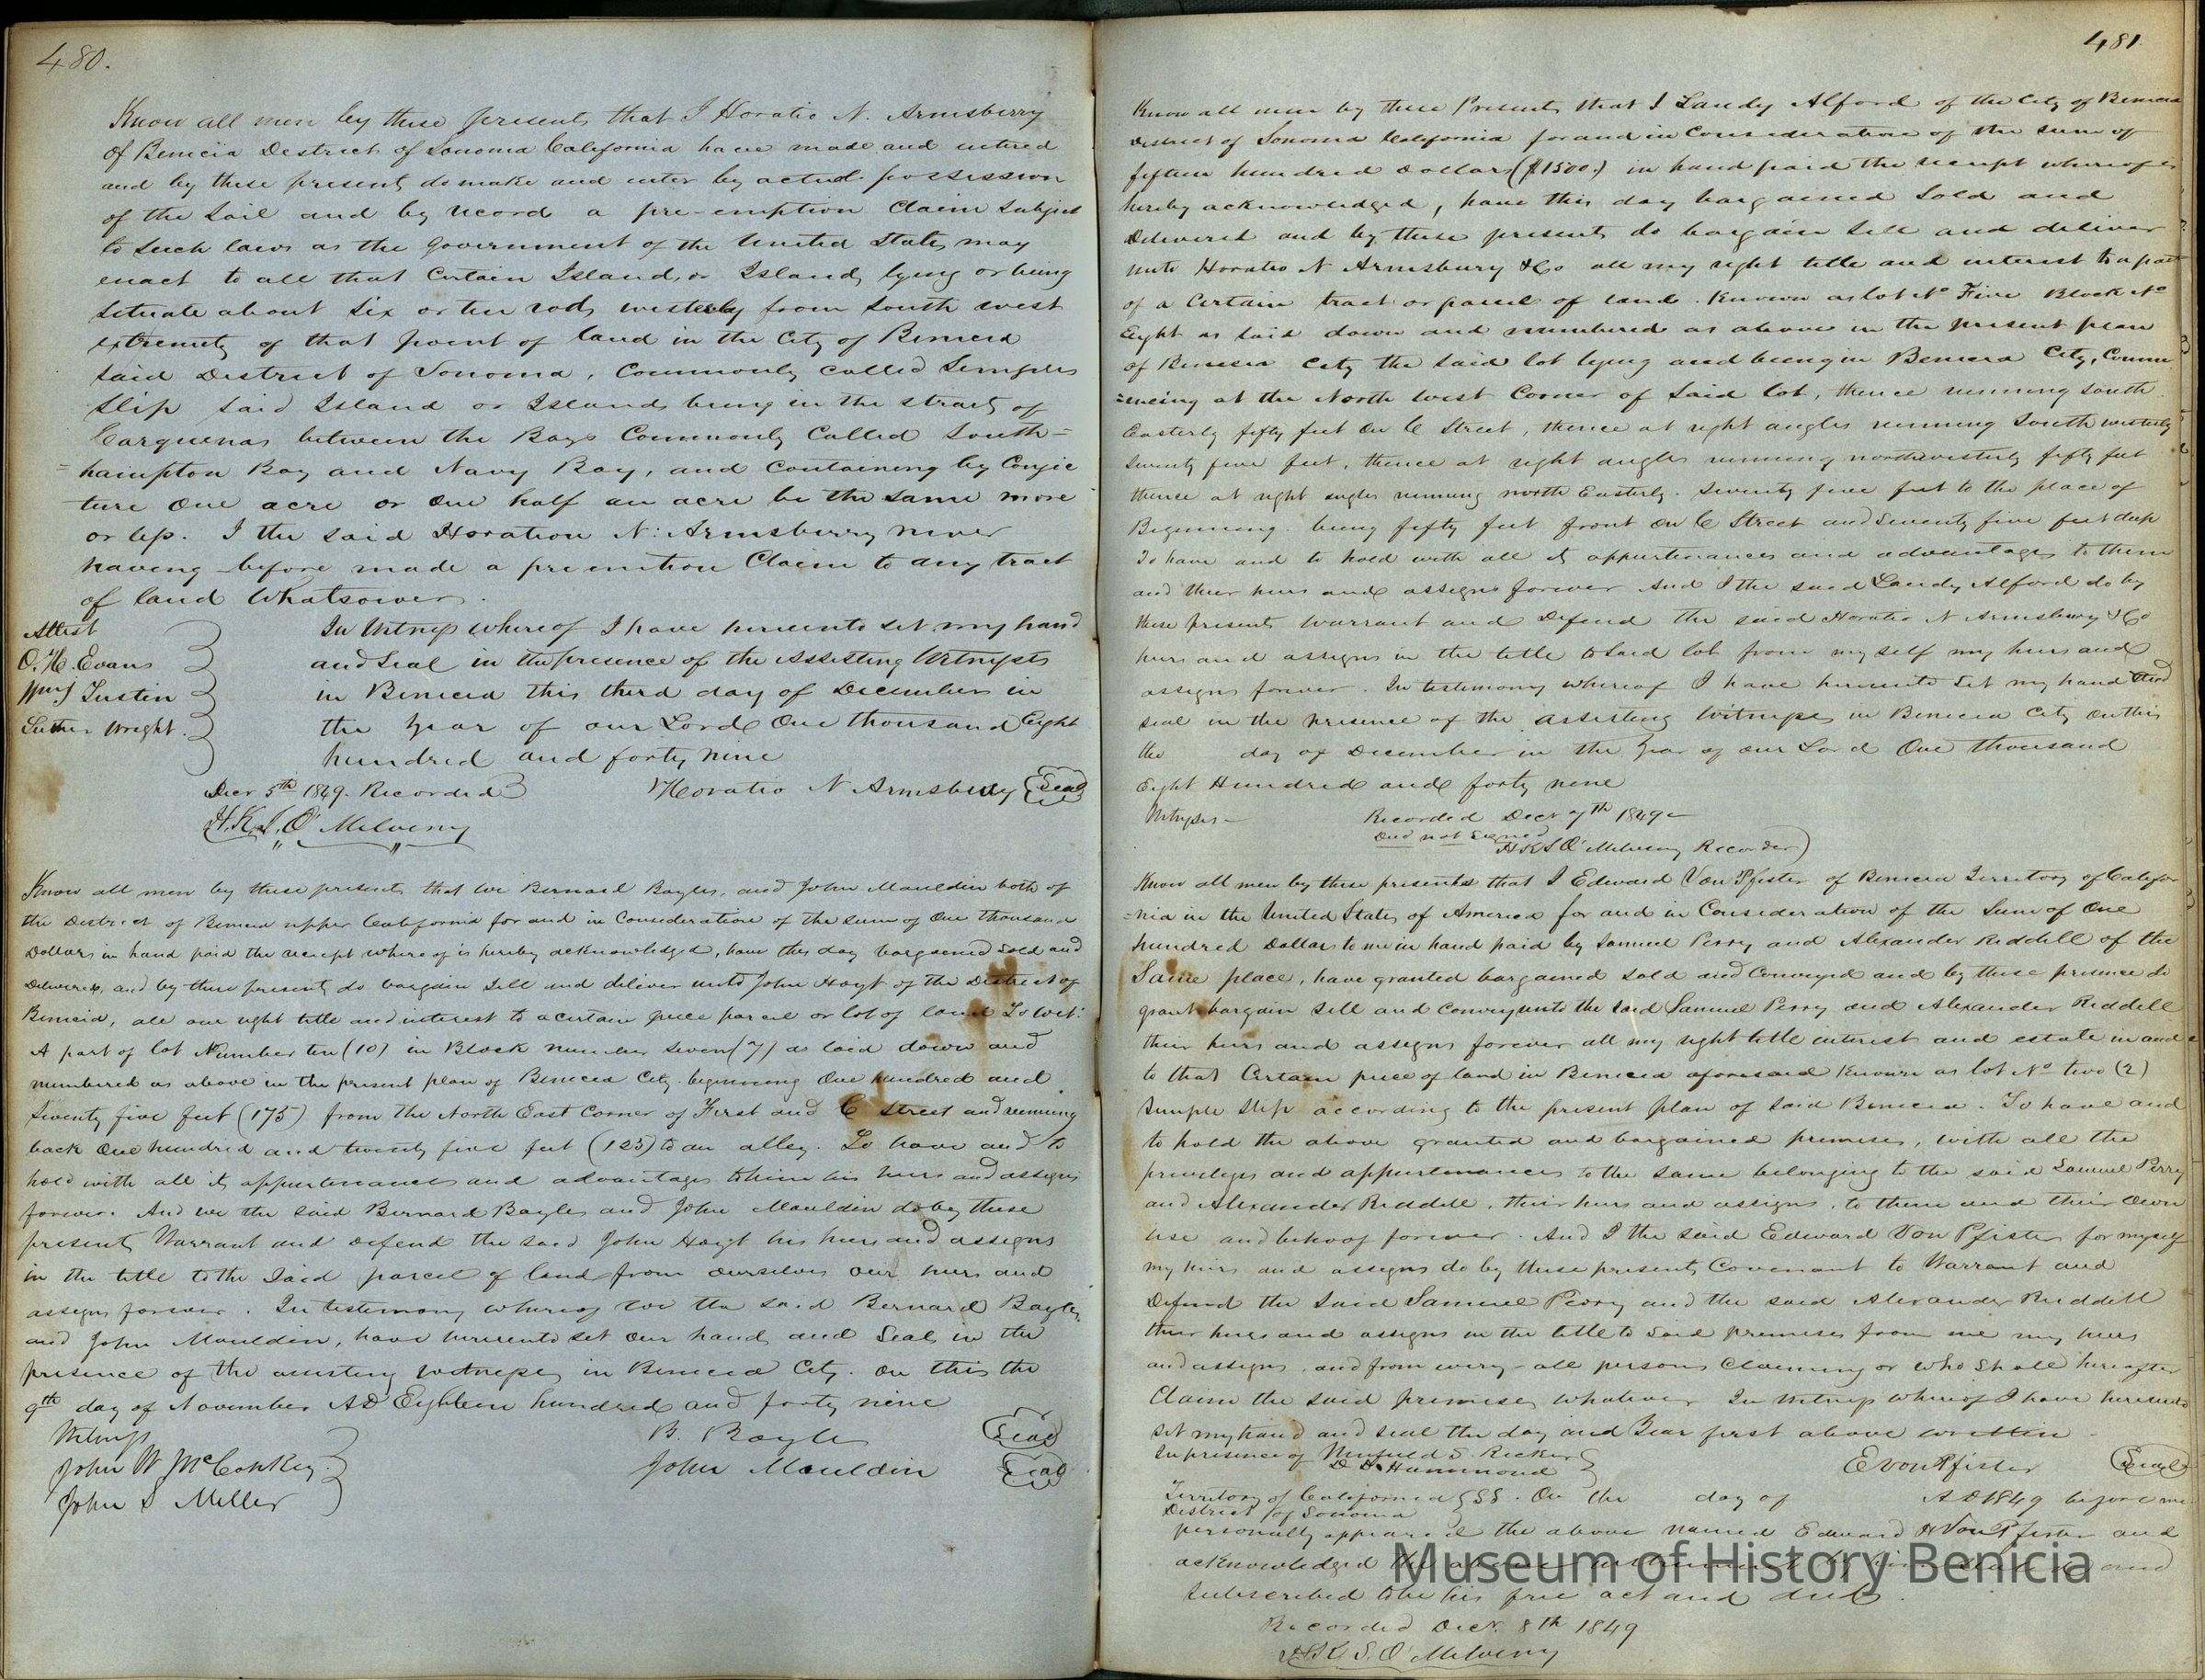 480.
Know all men by these presents that I Horatio N. Armsberry
of Benicia District of Sonoma California have made and entered
and by these presents do make and enter by actual possession
of the Soil and by record a pre-emption Claim Subject
to Such laws as the Government of the United States may
enact to all that Certain Island, or Islands lying or being
Situate about Six or ten rods westerly from South west
extremity of that point of land in the City of Benicia
Said District of Sonoma, Commonly called Semples
Slip Said Island or Islands being in the straits of
Carquenas between the Bays Commonly Called South=
=hampton Bay and Navy Bay, and Containing by Conjec
ture One acre or One half an acre be the same more
or less. I the said Horation N. Armsberry never
having before made a premition Claim to any tract
of land Whatsoever.
Attest
O. H. Evans
Wm J Tustin
Luther Wright.
In Witness whereof I have hereunto set my hand
and Seal in the presence of the Assisting Witnesses
in Benicia this third day of December in
the Year of our Lord One thousand Eight
hundred and forty nine
Decr 5th 1849. Recorded
Horatio N Armsbury Seal
H. K. S. O'Melveny
Know all men by these presents that We Bernard Bayles, and John Mauldin both of
the District of Benicia upper California for and in Consideration of the sum of One thousand
Dollars in hand paid the receipt whereof is hereby acknowledged, have this day bargained Sold and
Delivered, and by these presents do bargain Sell and deliver unto John Hoyt of the District of
Benicia, all our right title and interest to a certain piece parcel or lot of land To wit:
A part of lot Number ten (10) in Block number Seven (7) as laid down and
numbered as above in the present plan of Benicia City beginning One hundred and
Seventy five feet (175) from the North East Corner of First and C Street and running
back One hundred and twenty five feet (125) to an alley. To have and to
hold with all its appurtenances and advantages to him his heirs and assigns
forever. And we the said Bernard Bayles and John Mauldin do by these
presents Warrant and defend the said John Hoyt his heirs and assigns
in the title to the Said parcel of land from ourselves our heirs and
assigns forever. In testimony whereof we the said Bernard Bayles,
and John Mauldin, have hereunto set our hands and Seals in the
presence of the assisting witnesses in Benicia City. On this the
9th day of November AD Eighteen hundred and forty nine
Witness
John W McConkey.
John S Miller
B. Bayles Seal
John Mauldin Seal
481.
Know all men by these Presents that I Landy Alford of the City of Benicia
District of Sonoma California for and in Consideration of the sum of
fifteen hundred Dollars ($1500.) in hand paid the receipt whereof is
hereby acknowledged, have this day bargained Sold and
Delivered and by these presents do bargain Sell and deliver
unto Horatio N Armsbury & Co all my right title and interest to a part
of a Certain tract or parcel of land. Known as lot No Five Block No
Eight as laid down and numbered as above in the present plan
of Benicia City the said lot lying and being in Benicia City, Comm
=encing at the North West Corner of Said lot, thence running South
Easterly fifty feet on C Street, thence at right angles running South westerly
Seventy five feet, thence at right angles running northwesterly fifty feet
thence at right angles running north Easterly. Seventy five feet to the place of
Beginning. being fifty feet front on C Street and Seventy five feet deep
To have and to hold with all its appurtenances and advantages to them
and their heirs and assigns forever And I the said Landy Alford do by
these presents Warrant and Defend the said Horatio N Armsbury & Co
heirs and assigns in the title to Said lot from myself my heirs and
assigns forever. In testimony whereof I have hereunto Set my hand and
seal in the presence of the assisting Witnesses in Benicia City on this
the day of December in the Year of our Lord One thousand
Eight Hundred and forty nine
Witnesses
Recorded Decr 7th 1849
Deed not Signed
H K S O'Melveny Recorder
Know all men by these presents that I Edward Von Pfister of Benicia Territory of Califor
=nia in the United States of America for and in Consideration of the Sum of One
hundred Dollars to me in hand paid by Samuel Perry and Alexander Riddell of the
Same place, have granted bargained sold and Conveyed and by these presence do
grant bargain Sell and Convey unto the said Samuel Perry and Alexander Riddell
their heirs and assigns forever all my right title interest and estate in and
to that Certain piece of land in Benicia aforesaid Known as lot No two (2)
Semple Slip according to the present plan of Said Benicia. To have and
to hold the above granted and bargained premises, with all the
privileges and appurtenances to the same belonging to the said Samuel Perry
and Alexander Riddell, their heirs and assigns, to them and their Own
use and behoof forever. And I the said Edward Von Pfister for myself
my heirs and assigns do by these presents Covenant to Warrant and
Defend the Said Samuel Perry and the said Alexander Riddell
their heirs and assigns in the title to said premises from me my heirs
and assigns, and from every all persons Claiming or who Shall hereafter
Claim the said premises whatever In Witness whereof I have hereunto
set my hand and seal the day and Year first above written.
In presence of S. Ricker
D H Hammond
E Von Pfister Seal
Territory of California SS. On the day of AD 1849 before me
District of Sonoma
personally appeared the above named Edward H Von Pfister and
acknowledged the above instrument by him and
Subscribed to be his free act and deed.
Recorded Decr. 8th 1849
H. K. S. O'Melveny
Museum of History Benicia